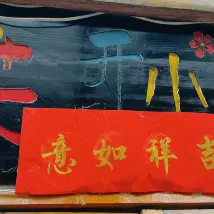 小开
吉祥如意